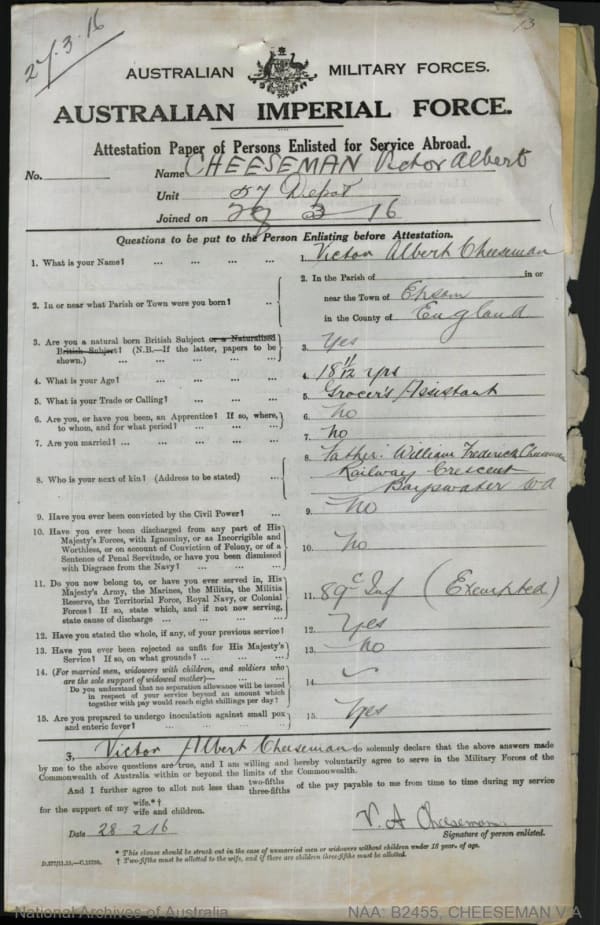 27.3.16
13
AUSTRALIAN MILITARY FORCES.
AUSTRALIAN IMPERIAL FORCE.
Attestation Paper of Persons Enlisted for Service Abroad.
No. Name CHEESEMAN Victor Albert
Unit 57 Depot
Joined on 16
Questions to be put to the Person Enlisting before Attestation.
1. What is your Name? ... ... ... ... 1. Victor Albert Cheeseman
2. In or near what Parish or Town were you born? .. 2. In the Parish of in or
near the Town of Epsom
in the County of England
3. Are you a natural born British Subject or a Naturalized
British Subject? (N.B.—If the latter, papers to be
shown.) ... ... ... ... 3. Yes
4. What is your Age? ... ... ... ... 4. 18 11/12 yrs
5. What is your Trade or Calling? ... ... ... 5. Grocer's Assistant
6. Are you, or have you been, an Apprentice? If so, where,
to whom, and for what period? ... ... ... 6. No
7. Are you married? ... ... ... ... 7. No
8. Who is your next of kin? (Address to be stated) ... 8. Father: William Frederick Cheeseman
Railway Crescent
Bayswater WA
9. Have you ever been convicted by the Civil Power? ... 9. No
10. Have you ever been discharged from any part of His
Majesty's Forces, with Ignominy, or as Incorrigible and
Worthless, or on account of Conviction of Felony, or of a
Sentence of Penal Servitude, or have you been dismissed
with Disgrace from the Navy? ... ... ... 10. No
11. Do you now belong to, or have you ever served in, His
Majesty's Army, the Marines, the Militia, the Militia
Reserve, the Territorial Force, Royal Navy, or Colonial
Forces? If so, state which, and if not now serving,
state cause of discharge ... ... ... ... 11. 89c Inf (Exempted)
12. Have you stated the whole, if any, of your previous service? 12. Yes
13. Have you ever been rejected as unfit for His Majesty's
Service? If so, on what grounds? ... ... ... 13. No
14. (For married men, widowers with children, and soldiers who
are the sole support of widowed mother)— ... ...
Do you understand that no separation allowance will be issued
in respect of your service beyond an amount which
together with pay would reach eight shillings per day? 14.
15. Are you prepared to undergo inoculation against small pox
and enteric fever? ... ... ... ... 15. Yes
I, Victor Albert Cheeseman do solemnly declare that the above answers made
by me to the above questions are true, and I am willing and hereby voluntarily agree to serve in the Military Forces of the
Commonwealth of Australia within or beyond the limits of the Commonwealth.
And I further agree to allot not less than two-fifths three-fifths of the pay payable to me from time to time during my service
for the support of my wife.*† wife and children.
Date 28 2 16 V. A Cheeseman
Signature of person enlisted.
* This clause should be struck out in the case of unmarried men or widowers without children under 18 year. of age.
† Two-fifths must be allotted to the wife, and if there are children three-fifths must be allotted.
National Archives of Australia NAA: B2455, CHEESEMAN V A